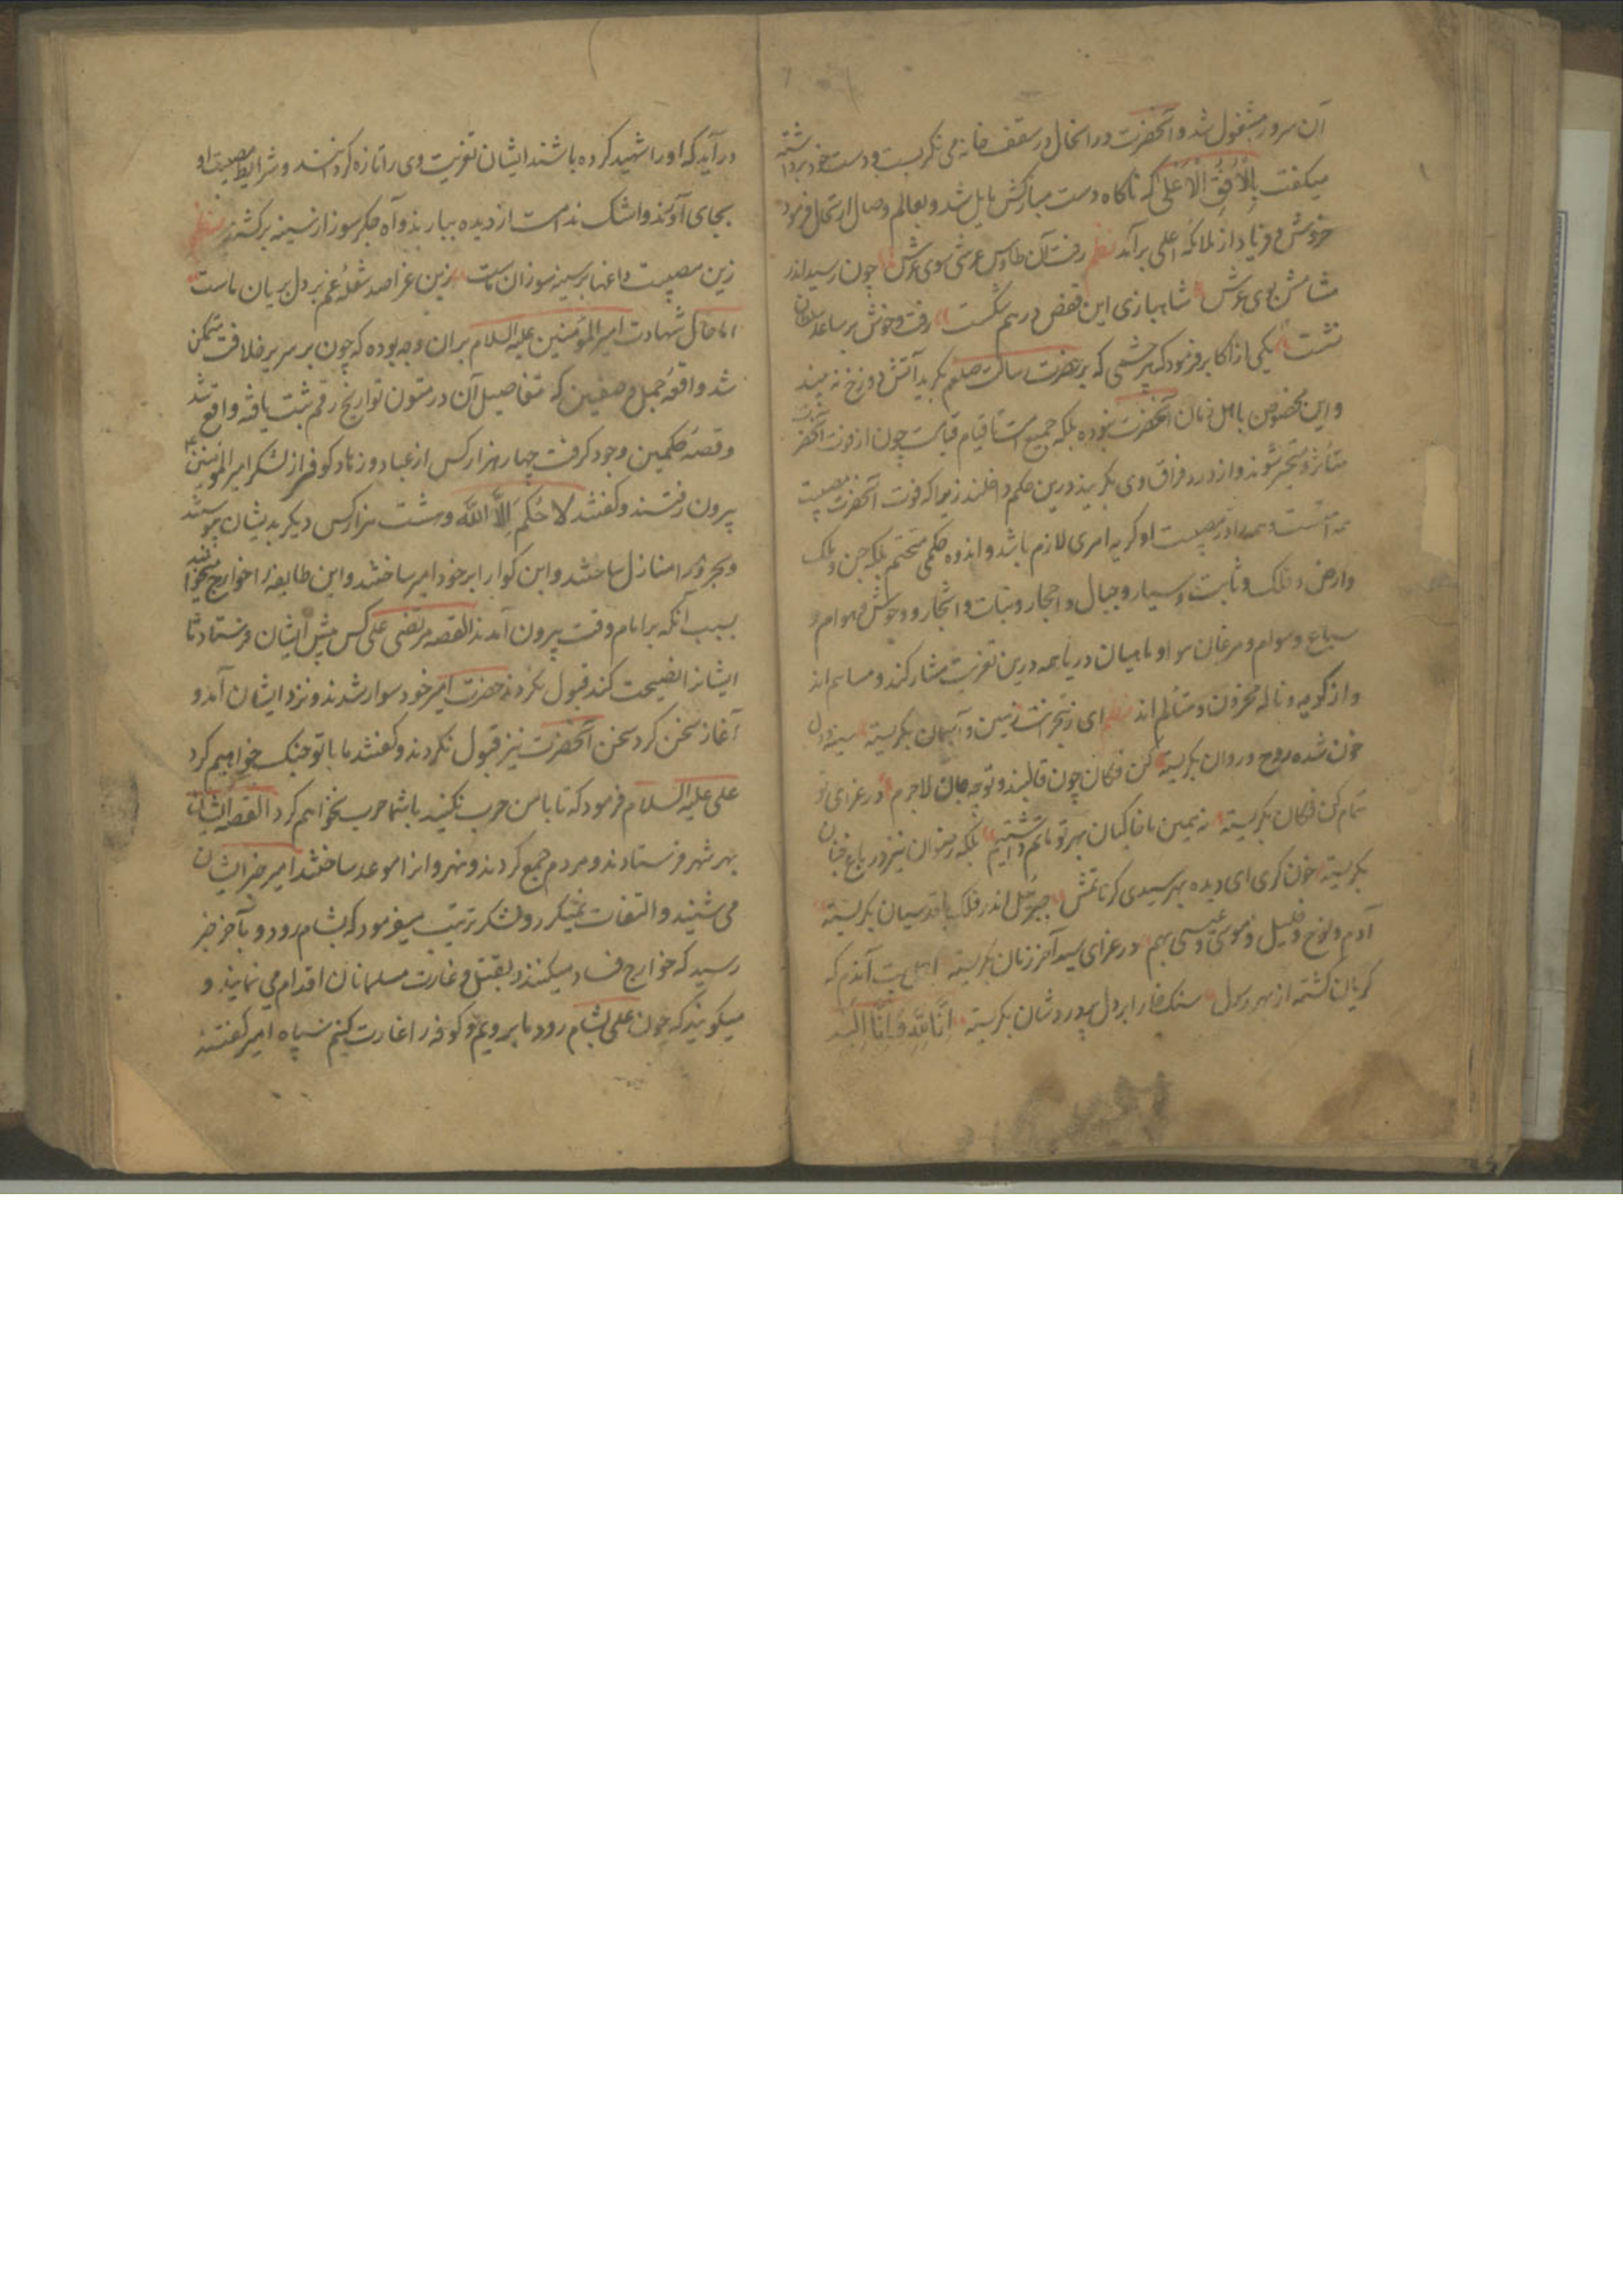 آن سرور مشغول شد و آنحضرت در انحال در سقف خانه می نکریست و دست خود برداشته
میکفت بِالْأُفُقِ الْأَعْلَی که ناکاه دست مبارکش مایل شد و بعالم وصال ارتحال فرمود
خروش و فریاد از ملائکه اعلی برآمد نظم رفت آن طاوس عرشی سوی عرش چون رسید اندر
مشامش بوی عرش شاهبازی این قفص درهم شکست رفت و خوش بر ساعد سلطان
نشست یکی از اکابر فرمود که هر چشمی که بر حضرت رسالت صلعم بکرید آتش دوزخ نه بیند
و این مخصوص باهل زمان آنحضرت نبوده بلکه جمیع امت تا قیام قیامت چون از فوت آنحضرت
متاثر و متحیر شوند و از درد فراق وی بکریند درین حکم داخلند زیرا که فوت آنحضرت مصیبت
همه امتست و همه را در مصیبت او کریه امری لازم باشد و اندوه حکمی متحتم بلکه جن و ملک
و ارض و فلک و ثابت و سیار و جبال و احجار و نبات و اشجار و وحوش و هوام و
سباع و سوام و مرغان هوا و ماهیان دریا همه درین تعزیت مشارکند و مساهم اند
و از کریه و ناله محزون و متألم اند نظم ای ز هجرانت زمین و آسمان بکریسته سینه و دل
خون شده روح و روان بکریسته کن فکان چون قالبند و تو چه جان لاجرم در عزای تو
تمام کن فکان بکریسته نه همین ما خاکیان بهر تو ماتم داشتیم بلکه رضوان نیز در باغ جنان
بکریسته خون کری ای دیده بهر سیدی کز ماتمش جبرئیل اندر فلک با قدسیان بکریسته
آدم و نوح و خلیل و موسی و عیسی بهم در عزای سید آخر زمان بکریسته اهل بیت آندم که
کریان کشته از بهر رسول سنک خارا بر دل پر دردشان بکریسته اِنَّا لِلّٰهِ وَ اِنَّا اِلَیْهِ
در آید که او را شهید کرده باشند ایشان تعزیت وی را تازه کردانند و شرایط مصیبت او
بجای آوند و اشک ندامت از دیده ببارند و آه جکر سوز از سینه برکشند نظم
زین مصیبت داغها بر سینه سوزان ماست زین عزا صد شعلهٔ غم بر دل بریان ماست
اما حال شهادت امیر المؤمنین علیه السلام بران وجه بوده که چون بر سریر خلافت متمکن
شد واقعهٔ جمل و صفین که تفاصیل آن در متون تواریخ رقم ثبت یافته واقع شد
و قصهٔ حکمین وجود کرفت چهار هزار کس از عباد و زهاد کوفه از لشکر امیر المؤمنین
بیرون رفتند و کفتند لا حُکمَ اِلاَّ اللّٰه و هشت هزار کس دیکر بدیشان پیوستند
و بحرورا منازل ساختند و ابن کوا را بر خود امیر ساختند و این طایفه را خوارج میخوانند
بسبب آنکه بر امام وقت بیرون آمدند القصه مرتضی علی کس پیش ایشان فرستاد تا
ایشانرا نصیحت کند قبول نکردند حضرت امیر خود سوار شدند و نزد ایشان آمد و
آغاز سخن کرد سخن آنحضرت نیز قبول نکردند و کفتند ما با تو جنک خواهیم کرد
علی علیه السلام فرمود که تا با من حرب نکنید باشما حرب نخواهم کرد القصه ایشان
بهر شهر فرستادند و مردم جمع کردند و نهروانرا موعد ساختند امیر خبر ایشان
می شنید و التفات نمیکرد و لشکر ترتیب میفرمود که بشام رود و بآخر خبر
رسید که خوارج فساد میکنند و بقتل و غارت مسلمانان اقدام می نمایند و
میکویند که چون علی بشام رود ما برویم و کوفه را غارت کنیم سپاه امیر کفتند